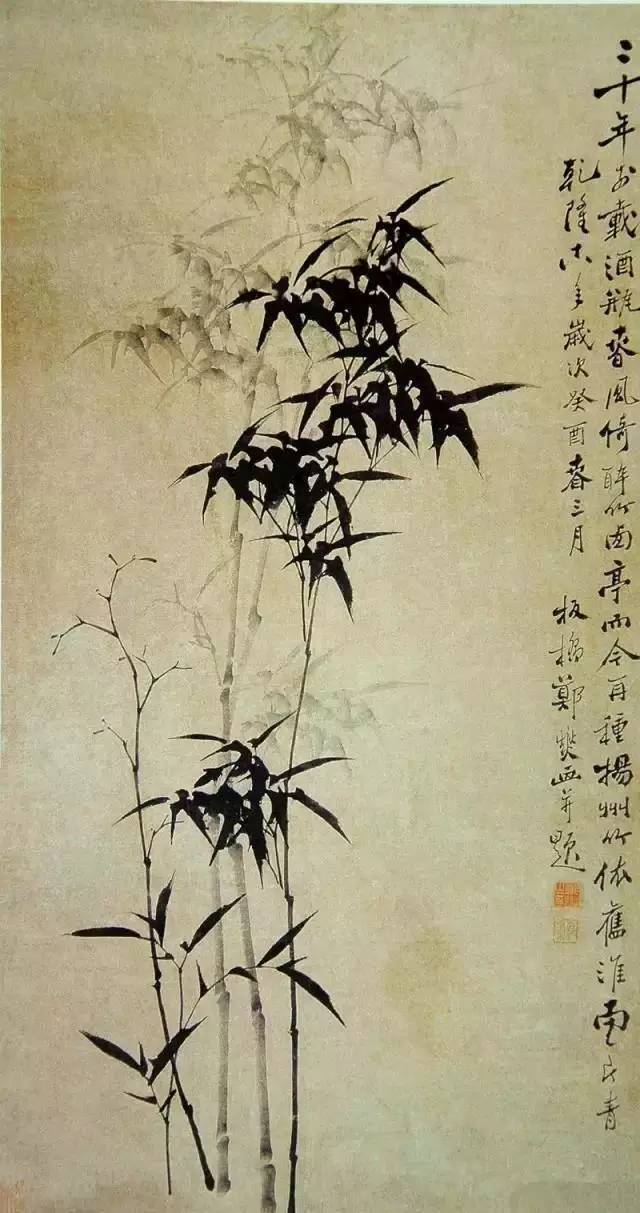 三十年前載酒瓶春風倚醉竹西亭而今再種揚州竹依舊淮南一片青
乾隆十八年歲次癸酉春三月
板橋鄭燮畫并題